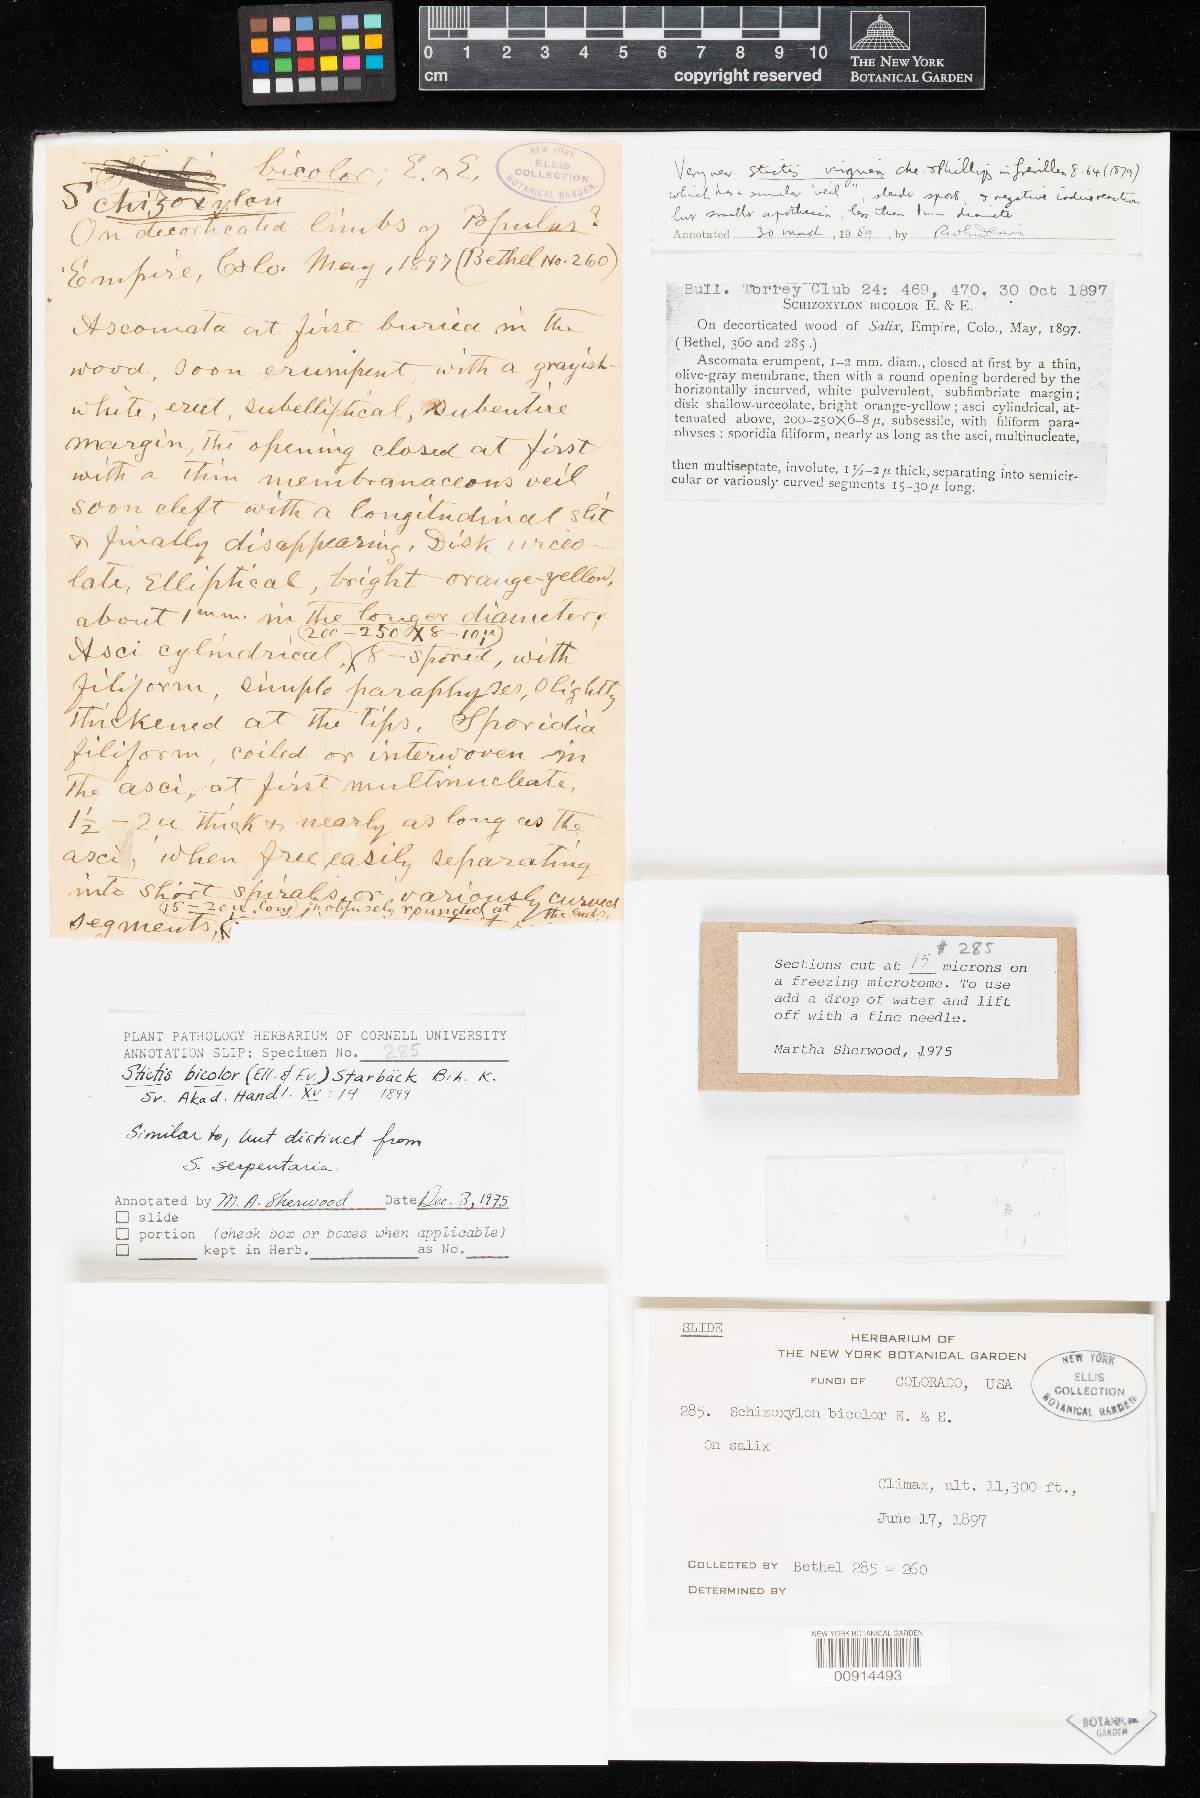 0 1 2 3 4 5 6 7 8 9 10
cm copyright reserved
THE NEW YORK
BOTANICAL GARDEN
Stictis bicolor, E. & E.
Schizoxylon
NEW YORK
ELLIS
COLLECTION
BOTANICAL GARDEN
On decorticated limbs of Populus?
Empire, Colo. May, 1897 (Bethel No. 260)
Ascomata at first buried in the
wood, soon erumpent with a grayish-
white, erect, subelliptical, subentire
margin, the opening closed at first
with a thin membranaceous veil
soon cleft with a longitudinal slit
& finally disappearing. Disk urceo-
late, elliptical, bright orange-yellow,
about 1 mm. in the longer diameter.
(200-250 X 8-10µ)
Asci cylindrical, 8-spored, with
filiform, simple paraphyses, slightly
thickened at the tips. Sporidia
filiform, coiled or interwoven in
the asci, at first multinucleate,
1½-2µ thick & nearly as long as the
asci, when free easily separating
into short spirals or variously curved
15-20µ long, obtusely rounded at the ends.
segments,
Very near Stictis virginea Cke. & Phillips in Grevillea 8: 64 (1879)
which has a similar "veil", slender spores, & negative iodine reaction
but smaller apothecia, less than 1 mm diameter
Annotated 30 March, 1989, by
Bull. Torrey Club 24: 469, 470. 30 Oct 1897
SCHIZOXYLON BICOLOR E. & E.
On decorticated wood of Salix, Empire, Colo., May, 1897.
(Bethel, 360 and 285.)
Ascomata erumpent, 1-2 mm. diam., closed at first by a thin,
olive-gray membrane, then with a round opening bordered by the
horizontally incurved, white pulverulent, subfimbriate margin;
disk shallow-urceolate, bright orange-yellow; asci cylindrical, at-
tenuated above, 200-250X6-8 µ, subsessile, with filiform para-
physes; sporidia filiform, nearly as long as the asci, multinucleate,
then multiseptate, involute, 1½-2 µ thick, separating into semicir-
cular or variously curved segments 15-30 µ long.
# 285
Sections cut at 15 microns on
a freezing microtome. To use
add a drop of water and lift
off with a fine needle.
Martha Sherwood, 1975
PLANT PATHOLOGY HERBARIUM OF CORNELL UNIVERSITY
ANNOTATION SLIP: Specimen No. 285
Stictis bicolor (Ell. & Ev.) Starbäck Bih. K.
Sv. Akad. Handl. XV: 14 1899
Similar to, but distinct from
S. serpentaria.
Annotated by M. A. Sherwood Date Dec. 3, 1975
slide
portion (check box or boxes when applicable)
kept in Herb. as No.
SLIDE
HERBARIUM OF
THE NEW YORK BOTANICAL GARDEN
FUNGI OF COLORADO, USA
NEW YORK
ELLIS
COLLECTION
BOTANICAL GARDEN
285. Schizoxylon bicolor E. & E.
On salix
Climax, alt. 11,300 ft.,
June 17, 1897
COLLECTED BY Bethel 285 = 260
DETERMINED BY
NEW YORK BOTANICAL GARDEN
00914493
BOTANICAL
GARDEN